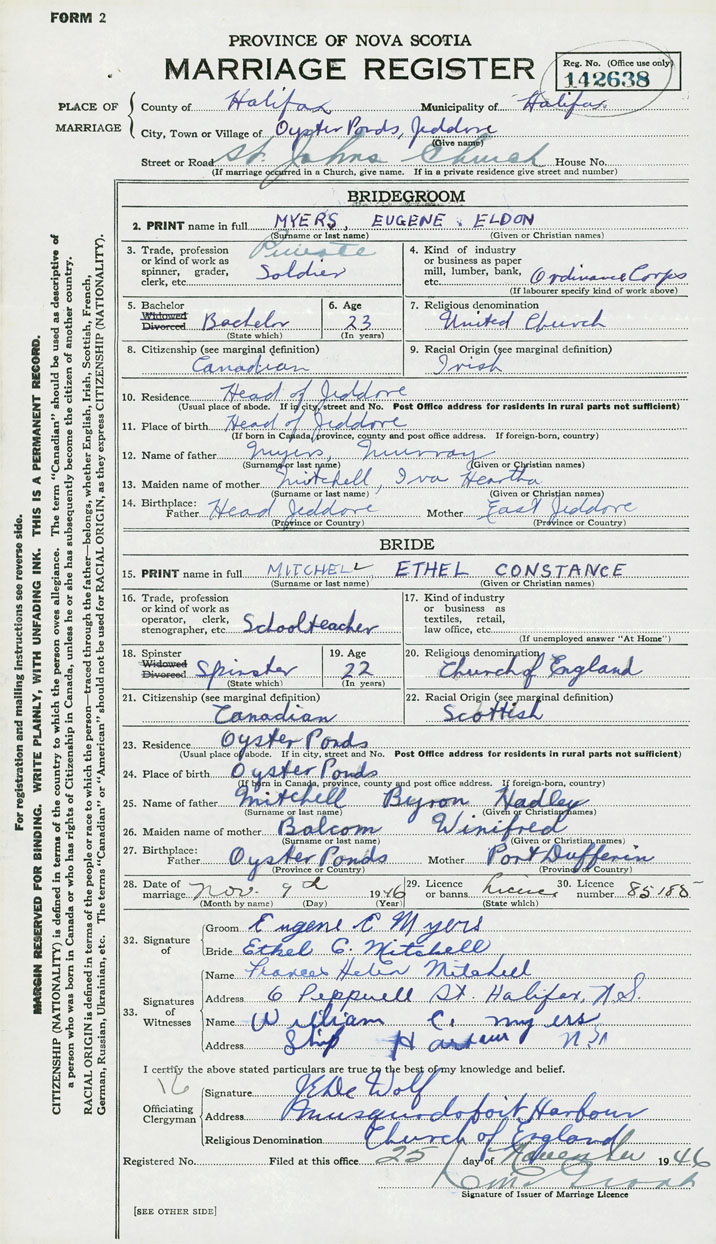 FORM 2
PROVINCE OF NOVA SCOTIA
MARRIAGE REGISTER
Reg. No. (Office use only)
142638
PLACE OF MARRIAGE
County of Halifax Municipality of Halifax
City, Town or Village of Oyster Ponds, Jeddore
(Give name)
Street or Road St. Johns Church House No.
(If marriage occurred in a Church, give name. If in a private residence give street and number)
BRIDEGROOM
2. PRINT name in full MYERS, EUGENE ELDON
(Surname or last name) (Given or Christian names)
3. Trade, profession or kind of work as spinner, grader, clerk, etc. Private Soldier
4. Kind of industry or business as paper mill, lumber, bank, etc. Ordinance Corps
(If labourer specify kind of work above)
5. Bachelor Widowed Divorced Bachelor
(State which)
6. Age 23
(In years)
7. Religious denomination
United Church
8. Citizenship (see marginal definition)
Canadian
9. Racial Origin (see marginal definition)
Irish
10. Residence Head of Jeddore
(Usual place of abode. If in city, street and No. Post Office address for residents in rural parts not sufficient)
11. Place of birth Head of Jeddore
(If born in Canada, province, county and post office address. If foreign-born, country)
12. Name of father Myers, Murray
(Surname or last name) (Given or Christian names)
13. Maiden name of mother Mitchell, Iva Heartha
(Surname or last name) (Given or Christian names)
14. Birthplace: Father Head Jeddore Mother East Jeddore
(Province or Country) (Province or Country)
BRIDE
15. PRINT name in full MITCHELL ETHEL CONSTANCE
(Surname or last name) (Given or Christian names)
16. Trade, profession or kind of work as operator, clerk, stenographer, etc. Schoolteacher
17. Kind of industry or business as textiles, retail, law office, etc.
(If unemployed answer "At Home")
18. Spinster Widowed Divorced Spinster
(State which)
19. Age 22
(In years)
20. Religious denomination
Church of England
21. Citizenship (see marginal definition)
Canadian
22. Racial Origin (see marginal definition)
Scottish
23. Residence Oyster Ponds
(Usual place of abode. If in city, street and No. Post Office address for residents in rural parts not sufficient)
24. Place of birth Oyster Ponds
(If born in Canada, province, county and post office address. If foreign-born, country)
25. Name of father Mitchell Byron Hadley
(Surname or last name) (Given or Christian names)
26. Maiden name of mother Balcom Winifred
(Surname or last name) (Given or Christian names)
27. Birthplace: Father Oyster Ponds Mother Port Dufferin
(Province or Country) (Province or Country)
28. Date of marriage Nov. 9 1946
(Month by name) (Day) (Year)
29. Licence or banns License
(State which)
30. Licence number 85185
32. Signature of
Groom Eugene E Myers
Bride Ethel C. Mitchell
33. Signatures of Witnesses
Name Frances Helen Mitchell
Address 6 Peppwell St. Halifax, N.S.
Name William C. Myers
Address Ship Harbour N.S.
I certify the above stated particulars are true to the best of my knowledge and belief.
16
Officiating Clergyman
Signature De Wolf
Address Musquodoboit Harbour
Religious Denomination Church of England
Registered No. Filed at this office 25 day of November 1946
Signature of Issuer of Marriage Licence
[SEE OTHER SIDE]
For registration and mailing instructions see reverse side.
MARGIN RESERVED FOR BINDING. WRITE PLAINLY, WITH UNFADING INK. THIS IS A PERMANENT RECORD.
CITIZENSHIP (NATIONALITY) is defined in terms of the country to which the person owes allegiance. The term "Canadian" should be used as descriptive of
a person who was born in Canada or who has rights of Citizenship in Canada, unless he or she has subsequently become the citizen of another country.
RACIAL ORIGIN is defined in terms of the people or race to which the person—traced through the father—belongs, whether English, Irish, Scottish, French,
German, Russian, Ukrainian, etc. The terms "Canadian" or "American" should not be used for RACIAL ORIGIN, as they express CITIZENSHIP (NATIONALITY).